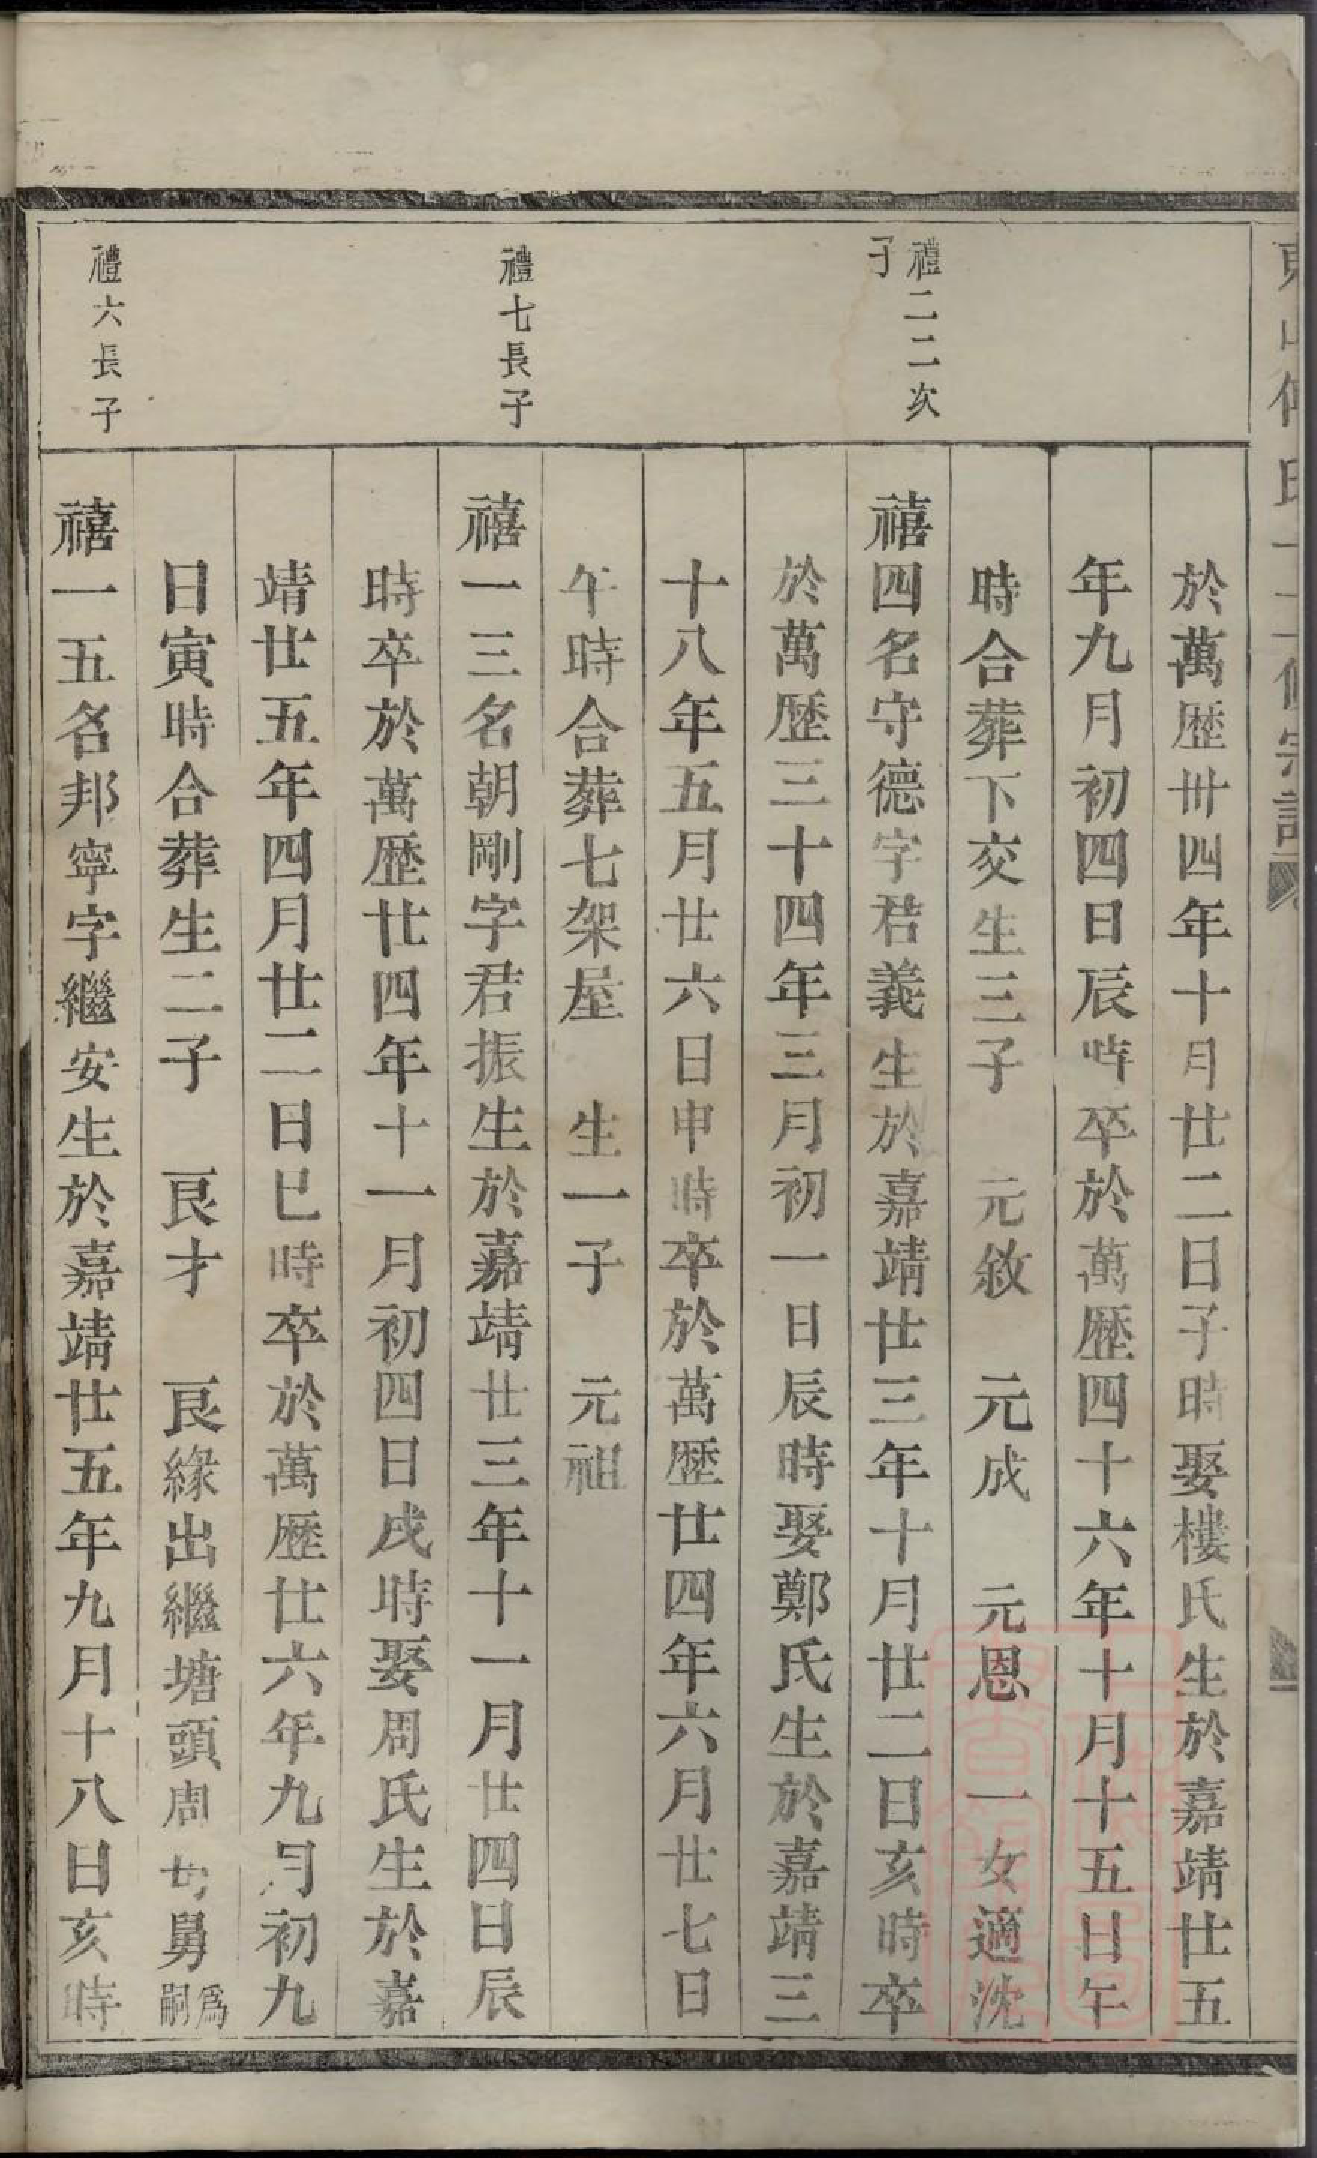 於萬歴卅四年十月廿二日子時娶樓氏生於嘉靖廿五
年九月初四日辰時卒於萬歴四十六年十月十五日午
時合葬下交生三子　元敘　元成　元恩　一女適沈
禮二二次子
禧四名守德字君義生於嘉靖廿三年十月廿二日亥時卒
於萬歴三十四年三月初一日辰時娶鄭氏生於嘉靖三
十八年五月廿六日申時卒於萬歴廿四年六月廿七日
午時合葬七架屋　生一子　元祖
禮七長子
禧一三名朝剛字君振生於嘉靖廿三年十一月廿四日辰
時卒於萬歴廿四年十一月初四日戌時娶周氏生於嘉
靖廿五年四月廿二日巳時卒於萬歴廿六年九月初九
日寅時合葬生二子　良才　良緣出繼塘頭周母舅爲嗣
禮六長子
禧一五名邦寧字繼安生於嘉靖廿五年九月十八日亥時